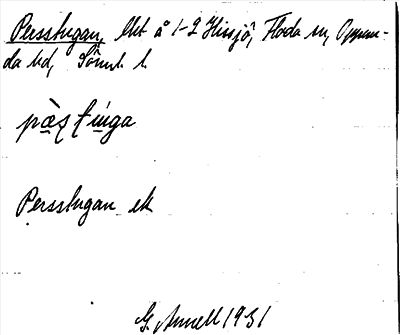 Persstugan, lht å 1-2 Hinsjö, Floda sn, Oppun-
da hd, Söml. l.
pàʂʈúga
Persstugan ek
G. Annell 1931